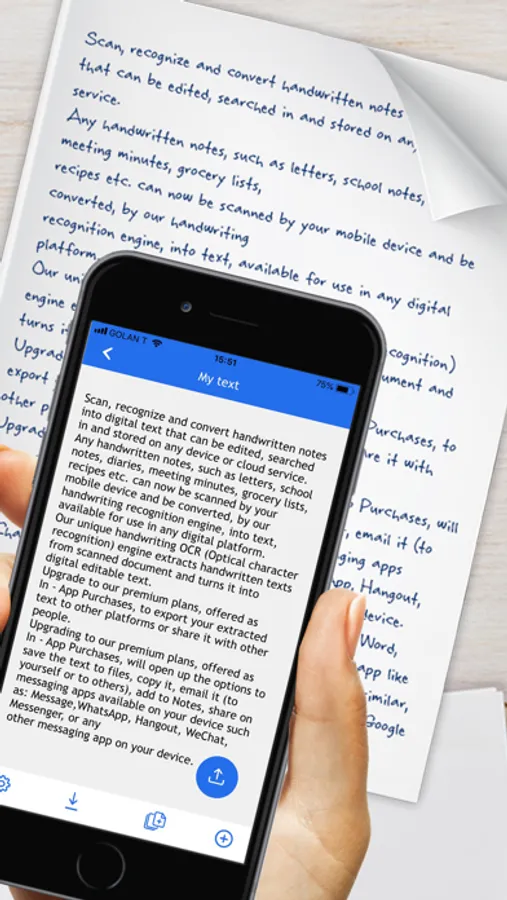 Scan, recognize and convert handwritten notes
that can be edited, searched in and stored on an
service.
Any handwritten notes, such as letters, school notes,
meeting minutes, grocery lists,
recipes etc. can now be scanned by your mobile device and be
converted, by our handwriting
recognition engine, into text, available for use in any digital
platform.
Our uni
engine e
cognition)
turns i
cument and
Upgrad
export
Purchases, to
other p
re it with
Upgrad
Purchases, will
email it (to
ging apps
App, Hangout,
device.
Word,
app like
similar,
Google
Cha
GOLAN T
15:51
75%
My text
Scan, recognize and convert handwritten notes
into digital text that can be edited, searched
in and stored on any device or cloud service.
Any handwritten notes, such as letters, school
notes, diaries, meeting minutes, grocery lists,
recipes etc. can now be scanned by your
mobile device and be converted, by our
handwriting recognition engine, into text,
available for use in any digital platform.
Our unique handwriting OCR (Optical character
recognition) engine extracts handwritten texts
from scanned document and turns it into
digital editable text.
Upgrade to our premium plans, offered as
In - App Purchases, to export your extracted
text to other platforms or share it with other
people.
Upgrading to our premium plans, offered as
In - App Purchases, will open up the options to
save the text to files, copy it, email it (to
yourself or to others), add to Notes, share on
messaging apps available on your device such
as: Message,WhatsApp, Hangout, WeChat,
Messenger, or any
other messaging app on your device.